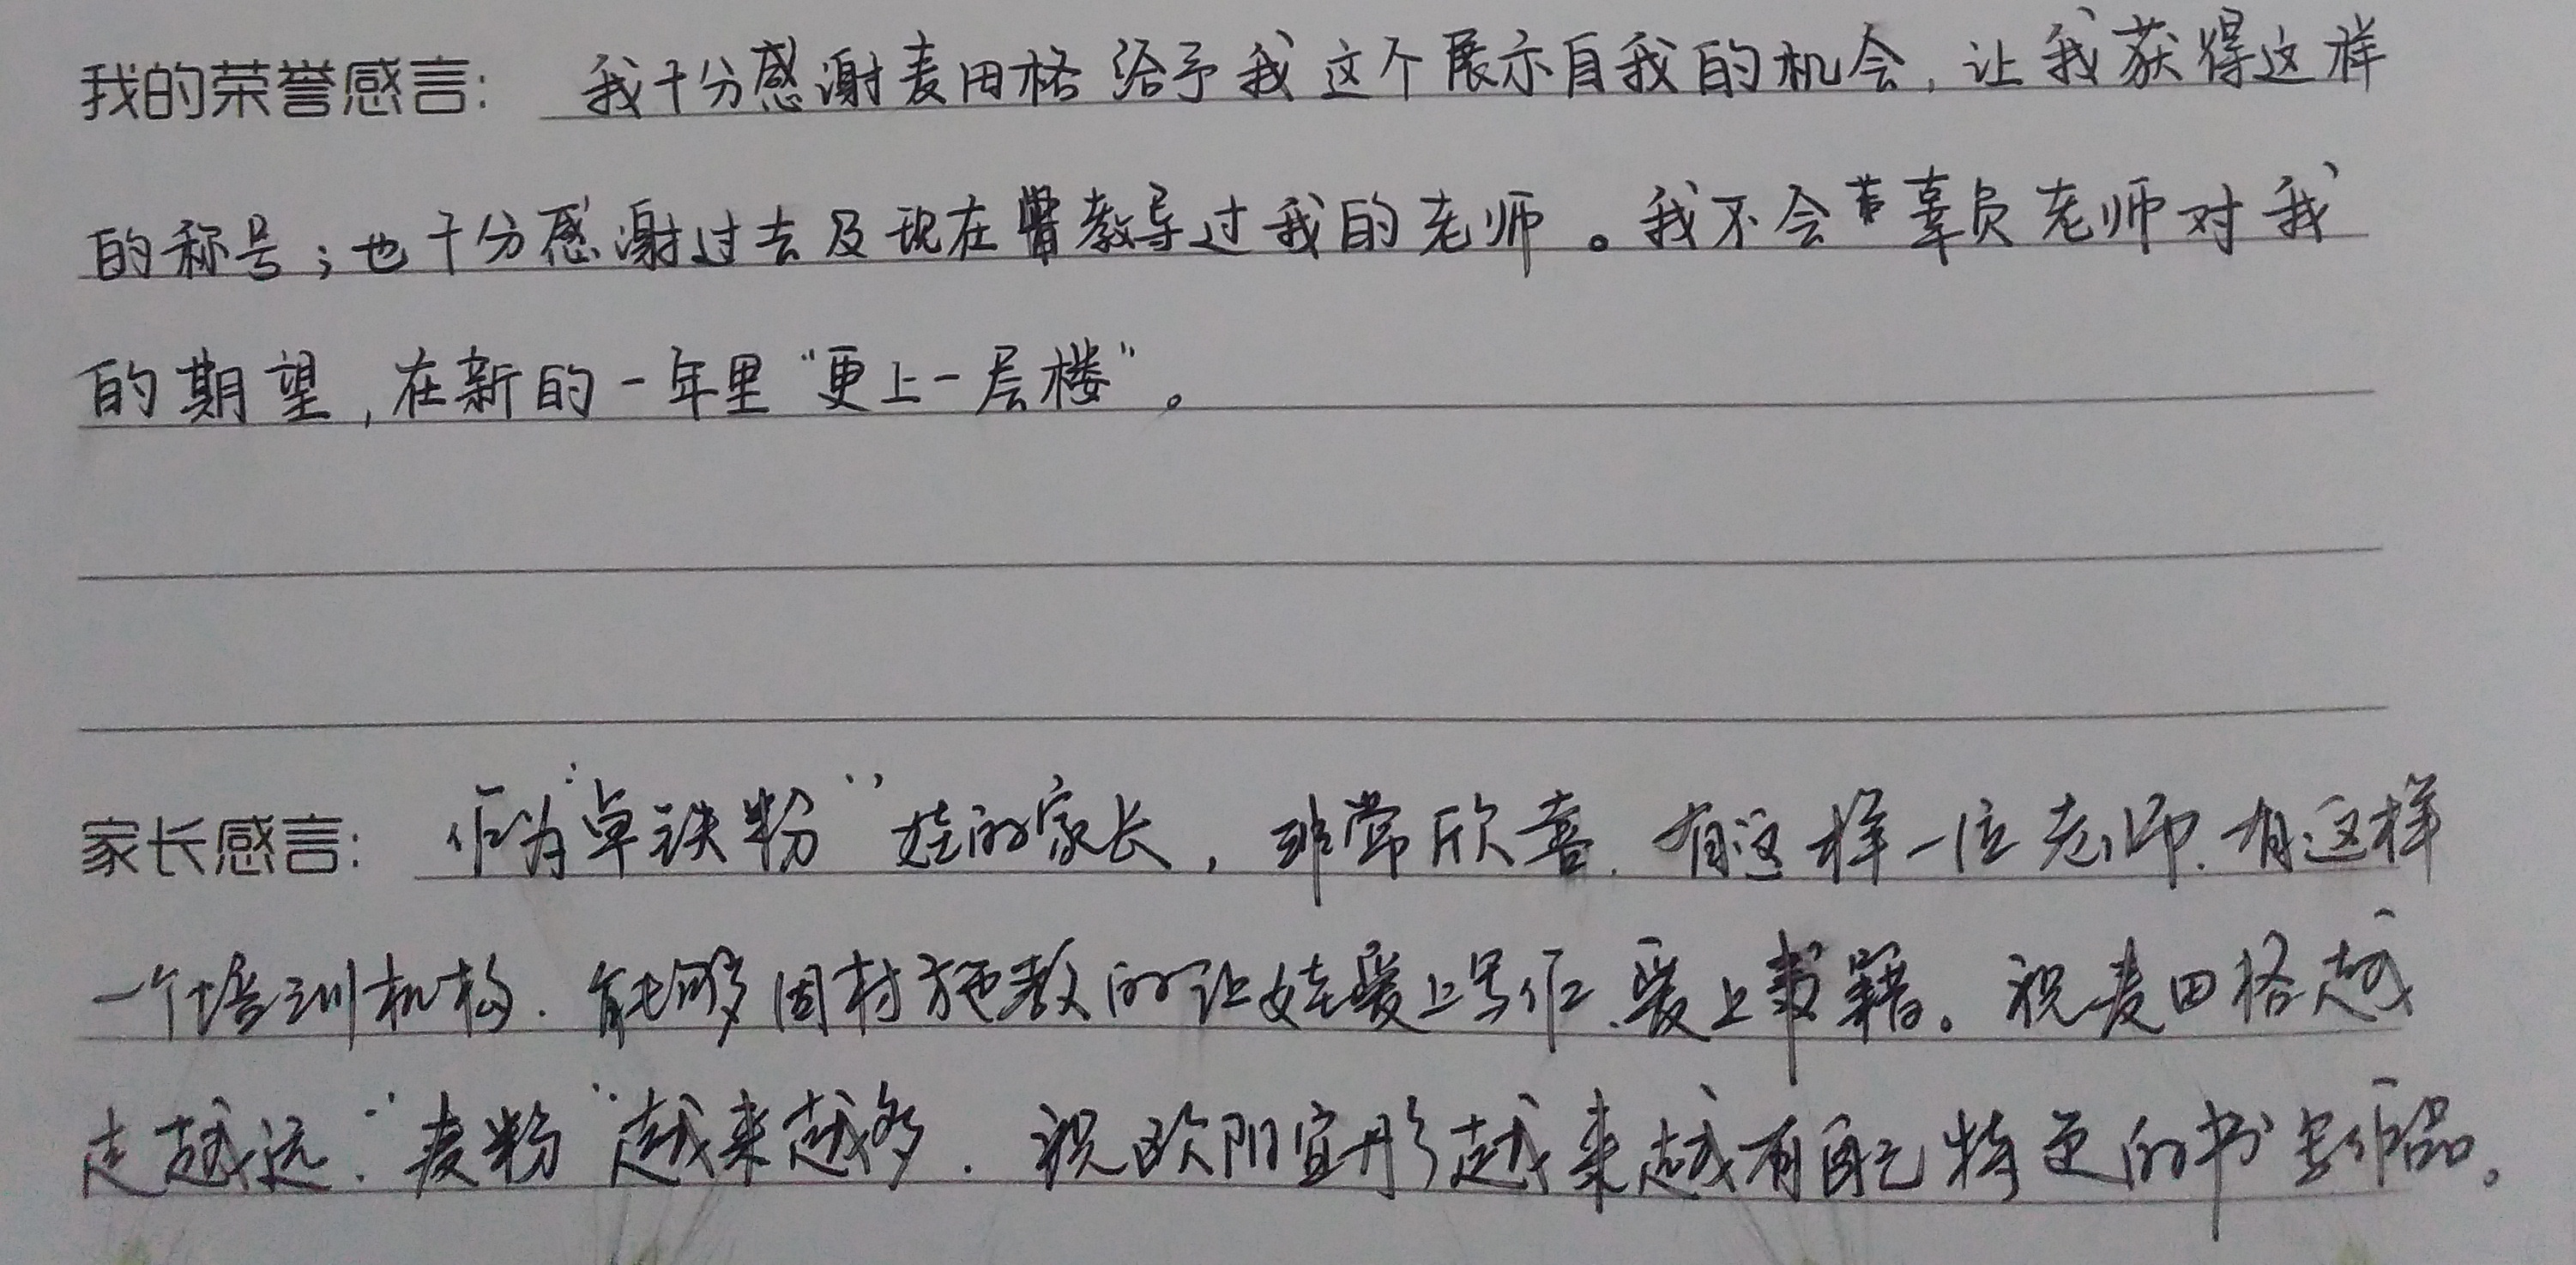 我的荣誉感言: 我十分感谢麦田格给予我这个展示自我的机会,让我获得这样
的称号;也十分感谢过去及现在教导过我的老师。我不会辜负老师对我
的期望,在新的一年里“更上一层楼”。
家长感言: 作为“卓轶粉”娃的家长,非常欣喜.有这样一位老师.有这样
一个培训机构.能够因材施教的让娃爱上写作、爱上书籍。祝麦田格越
走越远.“麦粉”越来越多.祝欧阳宜彤越来越有自己特色的书写作品。